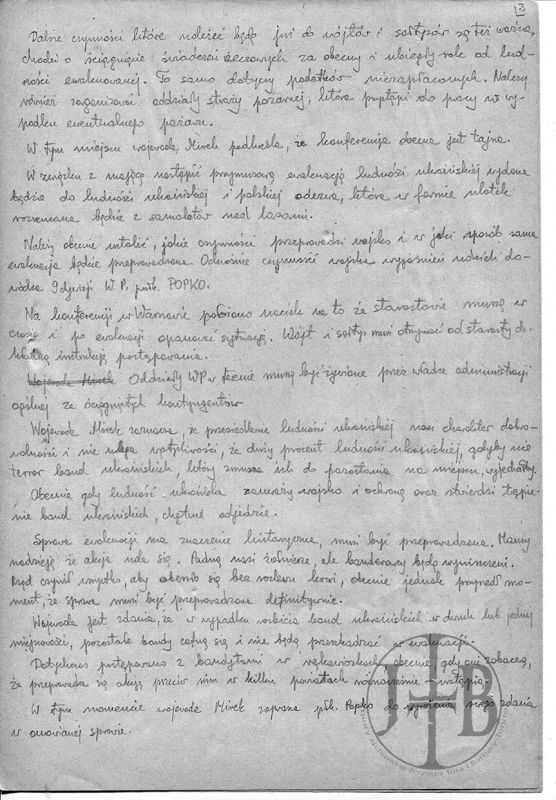 3
Dalsze czynności które należeć będą już do wójtów i sołtysów są też ważne,
chodzi o ściągnięcie świadczeń rzeczowych za obecny i ubiegły rok od lud-
ności ewakuowanej. To samo dotyczy podatków niezapłaconych. Należy
również zorganizować oddziały straży pożarnej, które przystąpi do pracy w wy-
padku ewentualnego pożaru.
W tym miejscu wojewoda Mirek podkreśla, że konferencja obecna jest tajna.
W związku z mającą nastąpić przymusową ewakuacją ludności ukraińskiej wydana
będzie do ludności ukraińskiej i polskiej odezwa, która w formie ulotek
rozrzucana będzie z samolotów nad lasami.
Należy obecnie ustalić, jakie czynności przeprowadzi wojsko i w jaki sposób sama
ewakuacja będzie przeprowadzona. Odnośnie czynności wojska wyjaśnień udzieli do-
wódca 9 dywizji W.P. pułk. POPKO.
Na konferencji w Warszawie położono nacisk na to że starostowie muszą w
czasie i po ewakuacji opanować sytuację. Wójt i sołtys musi otrzymać od starosty do-
kładną instrukcję postępowania.
Wojewoda Mirek Oddziały WP w terenie muszą być żywione przez władze administracji
ogólnej ze ściągniętych kontyngentów
Wojewoda Mirek zaznacza, że przesiedlenie ludności ukraińskiej nosi charakter dobro-
wolności i nie ulega wątpliwości, że duży procent ludności ukraińskiej, gdyby nie
terror band ukraińskich, który zmusza ich do pozostania na miejscu, wyjechałby.
Obecnie gdy ludność ukraińska zauważy wojsko i ochronę oraz stwierdzi tępie-
nie band ukraińskich, chętnie odjedzie.
Sprawa ewakuacji ma znaczenie historyczne, musi być przeprowadzona. Mamy
nadzieję że akcja uda się. Padną nasi żołnierze, ale banderowcy będą wyniszczeni.
Rząd czynił wszystko, aby obeszło się bez rozlewu krwi, obecnie jednak przyszedł mo-
ment, że sprawa musi być przeprowadzona definitywnie.
Wojewoda jest zdania, że w wypadku rozbicia band ukraińskich w dwuch lub jednej
miejscowości, pozostałe bandy cofną się i nie będą przeszkadzać w ewakuacji.
Dotychczas postępowano z bandytami w rękawiczkach, obecnie, gdy oni zobaczą,
że przeprowadza się akcję przeciw nim w kilku powiatach równocześnie - ustąpią.
W tym momencie wojewoda Mirek zaprasza płk. Popko do wyrażenia swego zdania
w omawianej sprawie.
J B